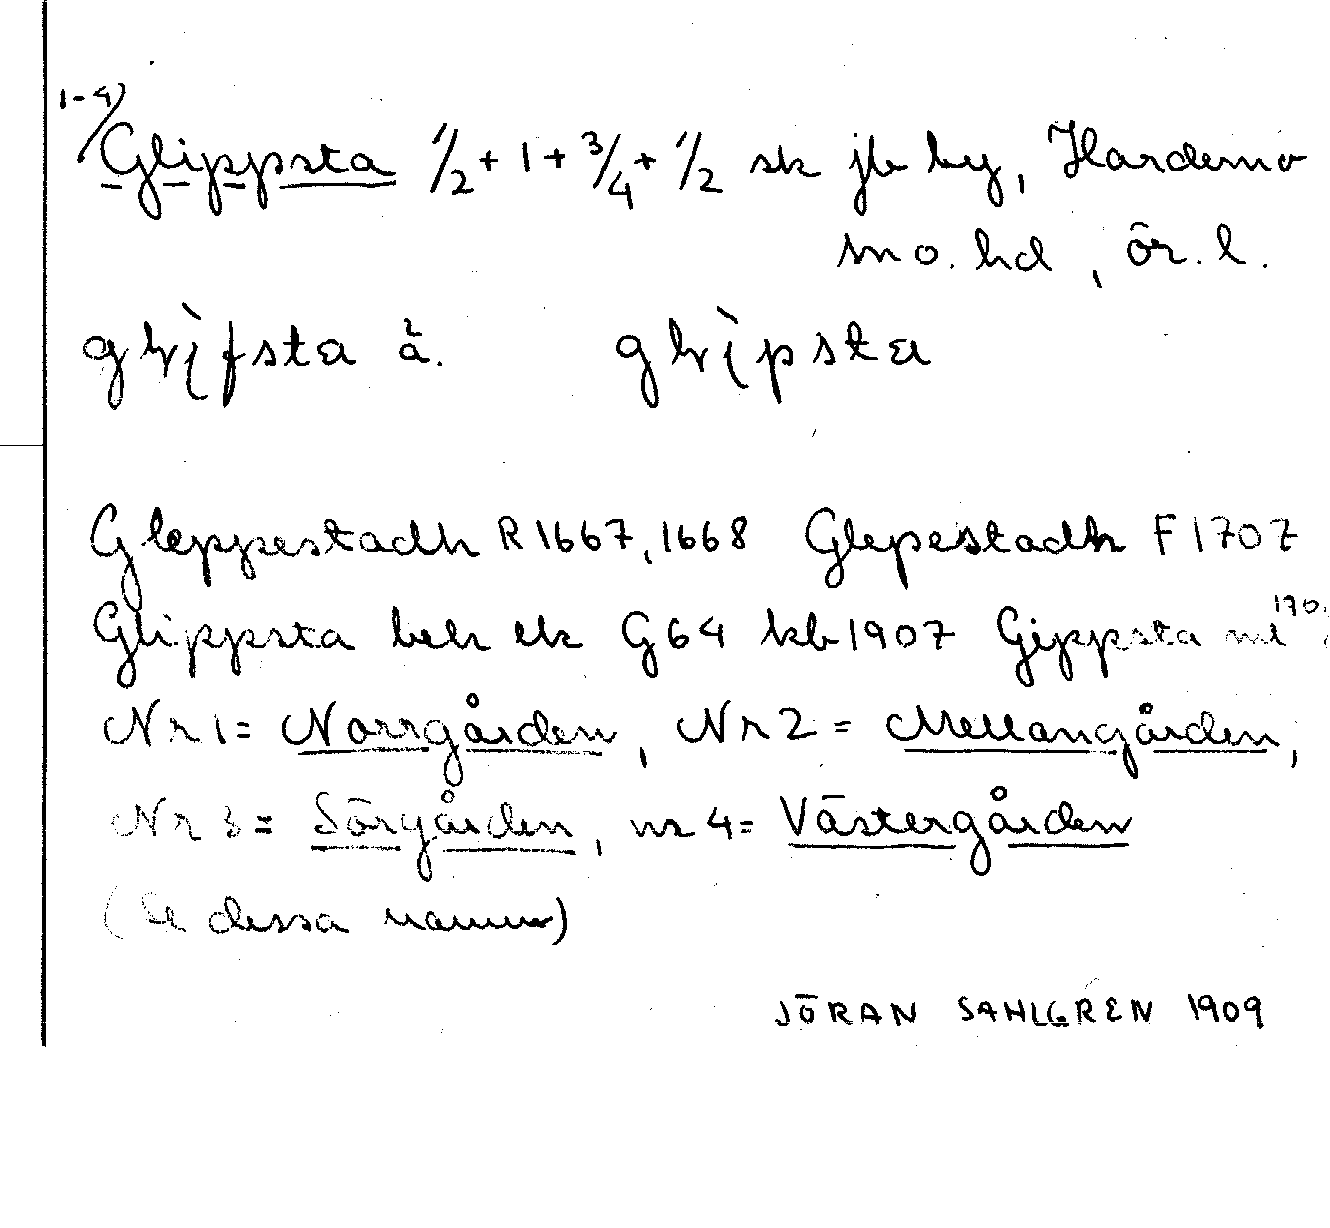 1-4)
Glippsta 1/2 + 1 + 3/4 + 1/2 sk jb by, Hardemo
sn o. hd, ör. l.
glìfsta à. glìpsta
Gleppestadh R 1667, 1668 Glepestadh F 1707
Glippsta beh ek G64 kb 1907 Gippsta ml 170
Nr 1 = Norrgården, Nr 2 = Mellangården,
Nr 3 = Sörgården, nr 4 = Västergården
(Se dessa namn)
JÖRAN SAHLGREN 1909